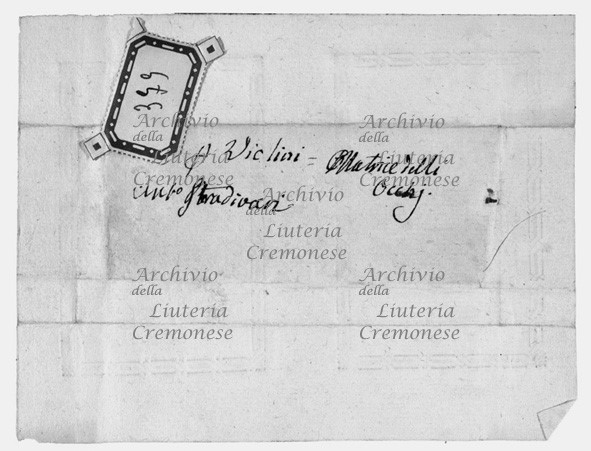 399
Violini = Matrice delli
Anto Stradivari Occhj.
Archivio
della
Liuteria
Cremonese
Archivio
della
Liuteria
Cremonese
Archivio
della
Liuteria
Cremonese
Archivio
della
Liuteria
Cremonese
Archivio
della
Liuteria
Cremonese